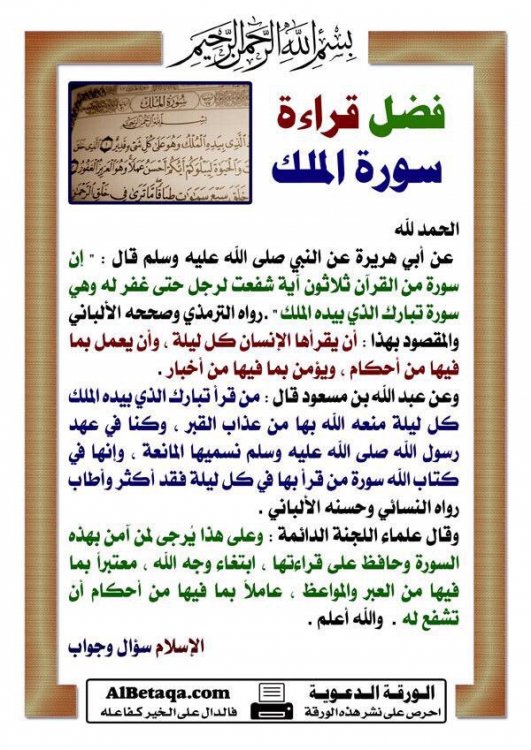 بسم الله الرحمن الرحيم
فضل قراءة
سورة الملك
سورة الملك
الحمد لله
عن أبي هريرة عن النبي صلى الله عليه وسلم قال : " إن
سورة من القرآن ثلاثون آية شفعت لرجل حتى غفر له وهي
سورة تبارك الذي بيده الملك" .رواه الترمذي وصححه الألباني
والمقصود بهذا : أن يقرأها الإنسان كل ليلة ، وأن يعمل بما
فيها من أحكام ، ويؤمن بما فيها من أخبار .
وعن عبد الله بن مسعود قال : من قرأ تبارك الذي بيده الملك
كل ليلة منعه الله بها من عذاب القبر ، وكنا في عهد
رسول الله صلى الله عليه وسلم نسميها المانعة ، وإنها في
كتاب الله سورة من قرأ بها في كل ليلة فقد أكثر وأطاب
رواه النسائي وحسنه الألباني .
وقال علماء اللجنة الدائمة : وعلى هذا يُرجى لمن آمن بهذه
السورة وحافظ على قراءتها ، ابتغاء وجه الله ، معتبراً بما
فيها من العبر والمواعظ ، عاملاً بما فيها من أحكام أن
تشفع له . والله أعلم .
الإسلام سؤال وجواب
الورقة الدعوية
احرص على نشر هذه الورقة
AlBetaqa.com
فالدال على الخير كفاعله